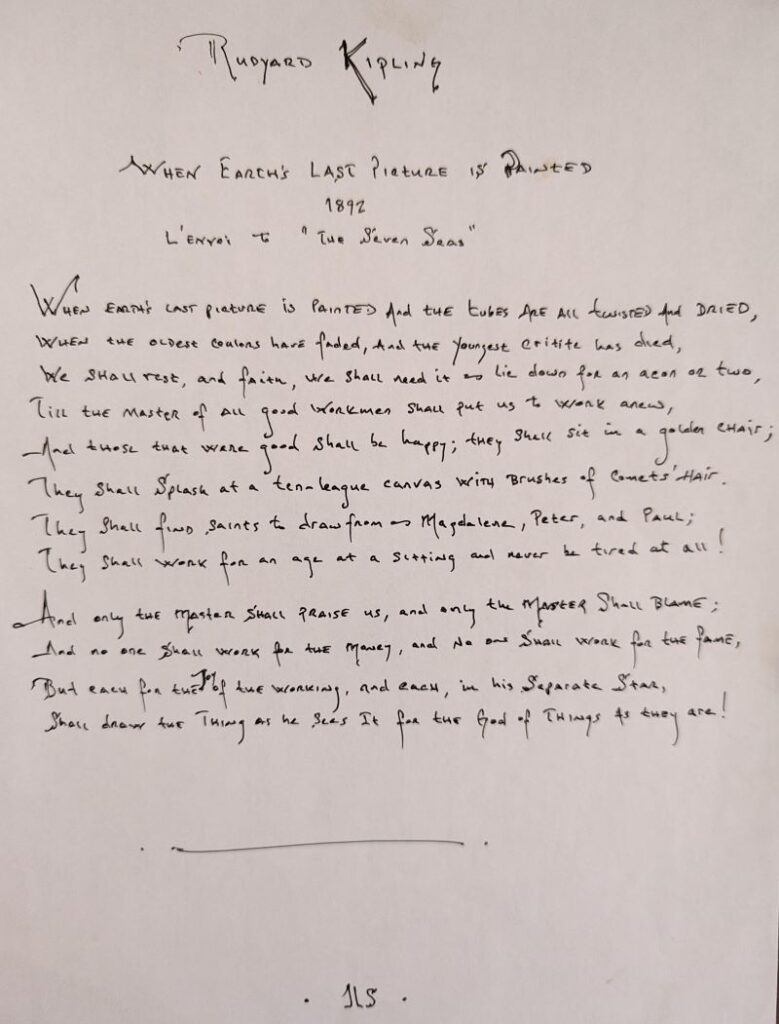 Rudyard Kipling
When Earth's Last Picture is Painted
1892
L'Envoi to "The Seven Seas"
When Earth's last picture is painted and the tubes are all twisted and dried,
When the oldest coulors have faded, and the youngest critite has died,
We shall rest, and faith, we shall need it – lie down for an aeon or two,
Till the Master of all good workmen shall put us to work anew,
And those that were good shall be happy; they shall sit in a golden chair;
They shall splash at a ten-league canvas with brushes of comets' hair.
They shall find saints to draw from – Magdalene, Peter, and Paul;
They shall work for an age at a sitting and never be tired at all!
And only the Master shall praise us, and only the Master shall blame;
And no one shall work for the money, and no one shall work for the fame,
But each for the Joy of the working, and each, in his separate star,
Shall draw the Thing as he sees It for the God of Things as they are!
JLS